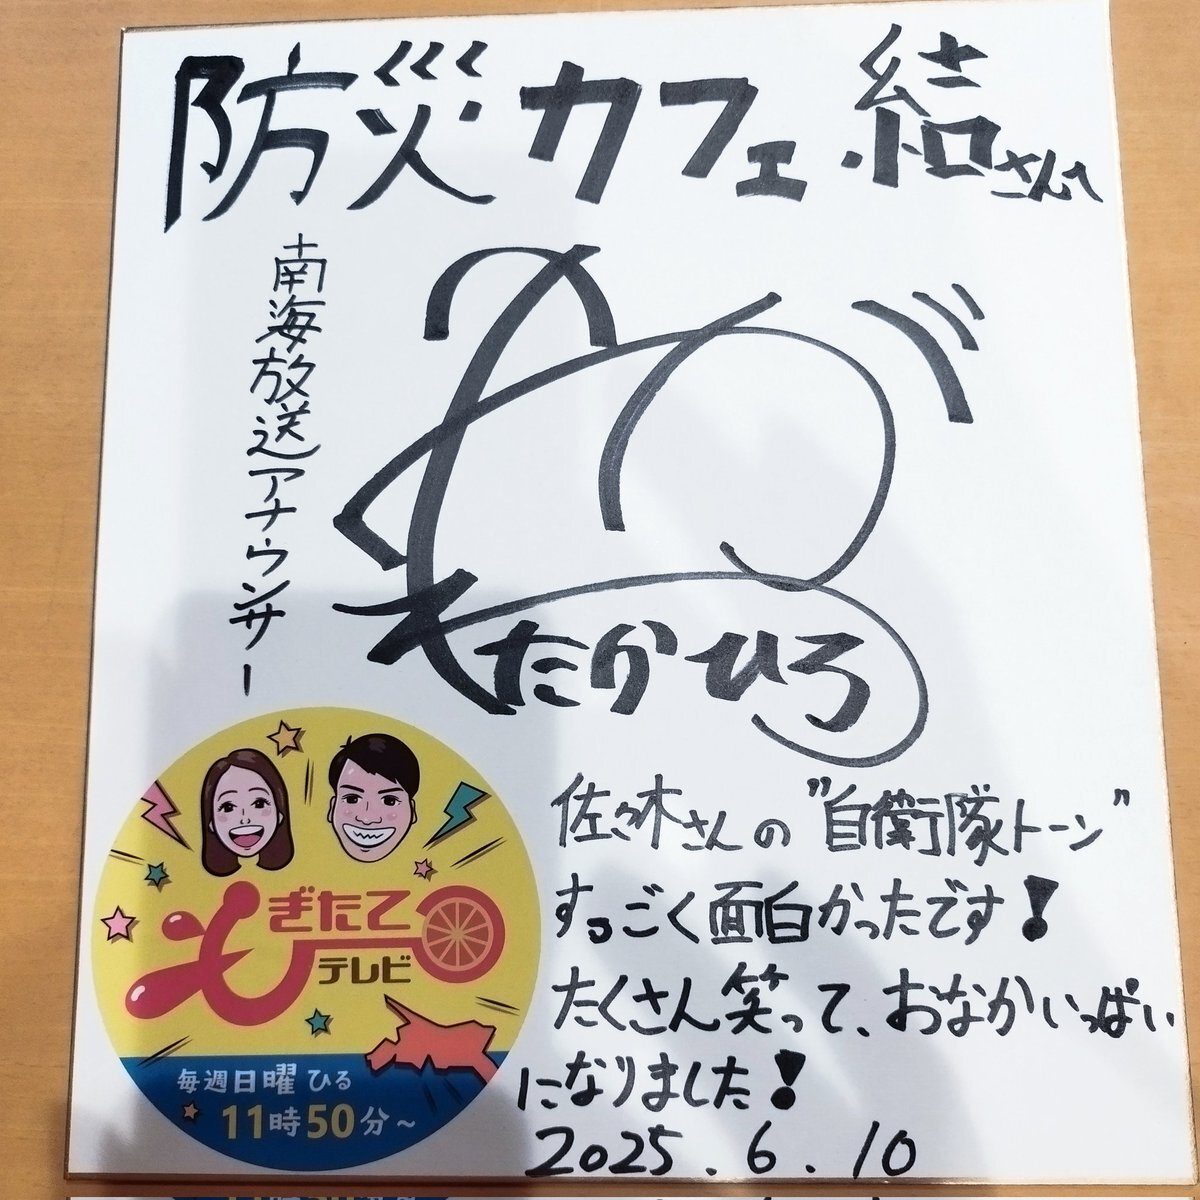 防災カフェ 結さんへ
南海放送アナウンサー
たかひろ
もぎたて
テレビ
毎週日曜 ひる
11時50分～
佐々木さんの"自衛隊トーン"
すっごく面白かったです！
たくさん笑って、おなかいっぱい
になりました！
2025.6.10